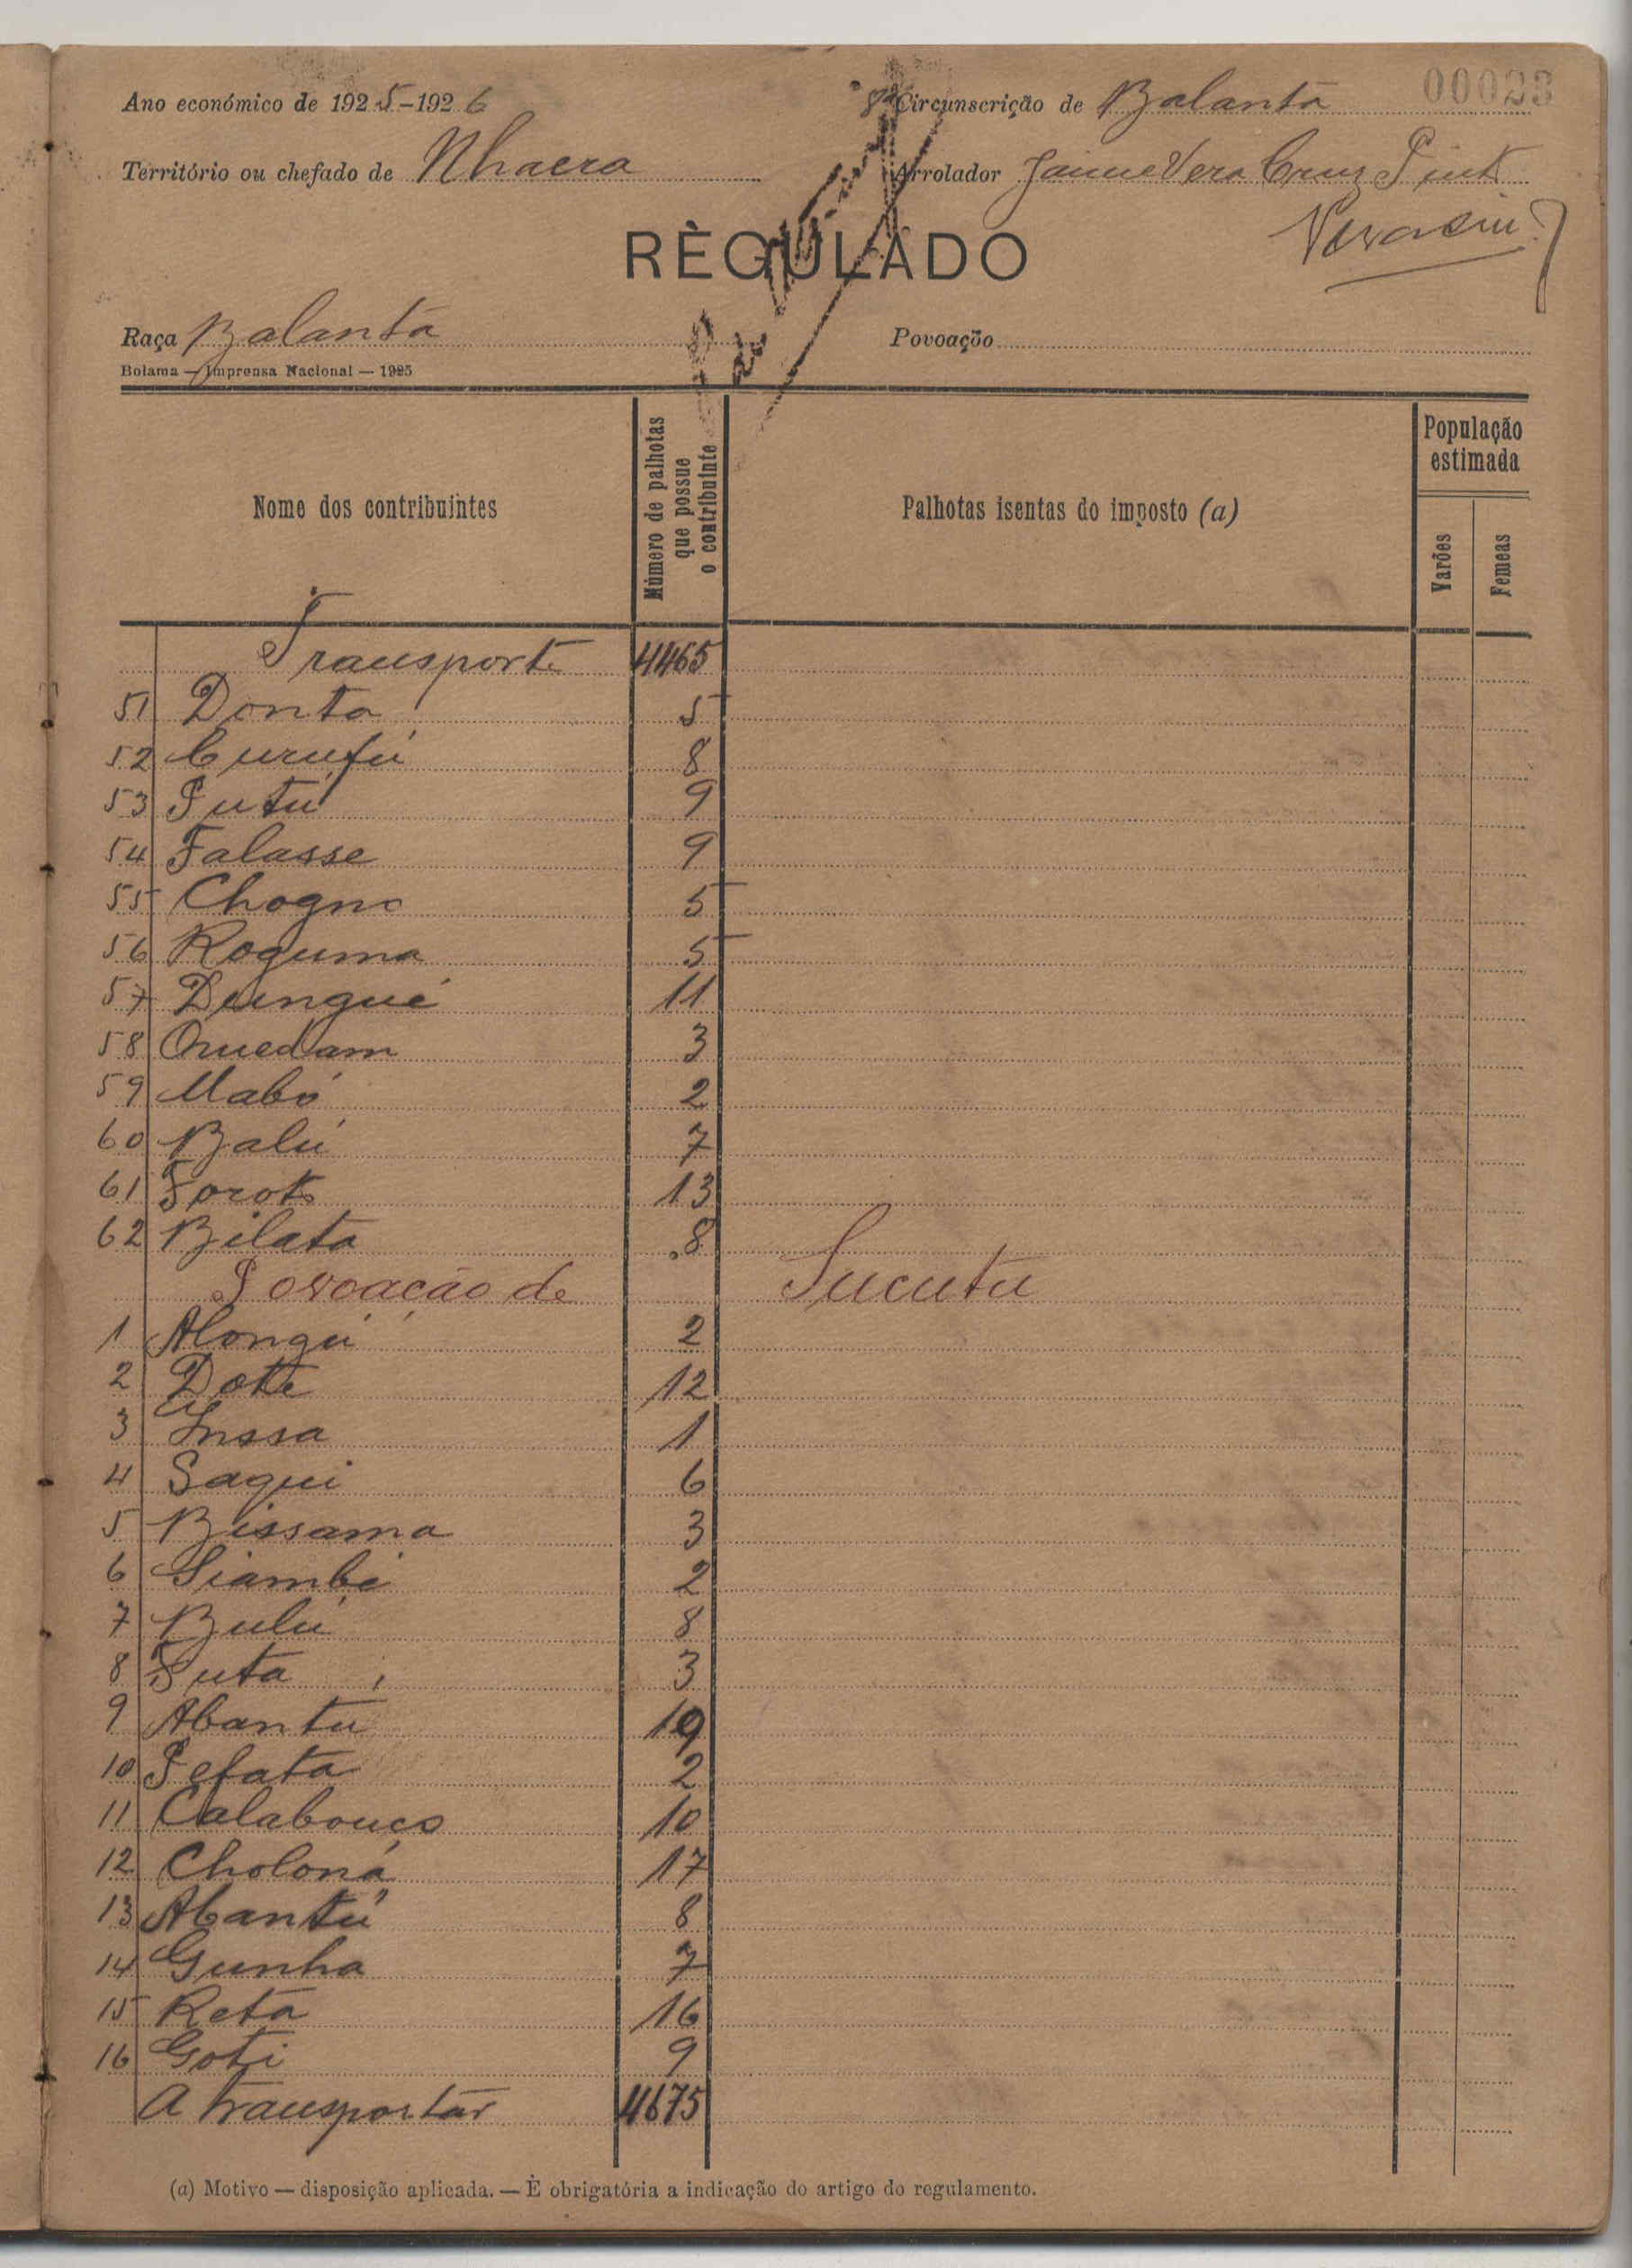 00023
Ano económico de 1925-1926 8ª Circunscrição de Balanta
Território ou chefado de Nhacra Arrolador Jaime Vera Cruz Pinto
RÈGULADO
Raça Balanta Povoação
Bolama — Imprensa Nacional — 1925
Nome dos contribuintes
Número de palhotas que possue o contribuinte
Palhotas isentas do imposto (a)
População estimada
Varões
Femeas
Transporte 4465
51 Donta 5
52 Curufú 8
53 Putú 9
54 Falasse 9
55 Chogno 5
56 Roguma 5
57 Dungué 11
58 Onuedam 3
59 Mabó 2
60 Balú 7
61 Foroto 13
62 Bilata 8
Povoação de Sucutu
1 Alongú 2
2 Dote 12
3 Inssa 1
4 Sagui 6
5 Bissama 3
6 Siambé 2
7 Bulú 8
8 Futa 3
9 Abantu 19
10 Pefata 2
11 Calabouço 10
12 Choloná 17
13 Abantú 8
14 Gunha 7
15 Reta 16
16 Goti 9
A transportar 4675
(a) Motivo — disposição aplicada. — È obrigatória a indicação do artigo do regulamento.